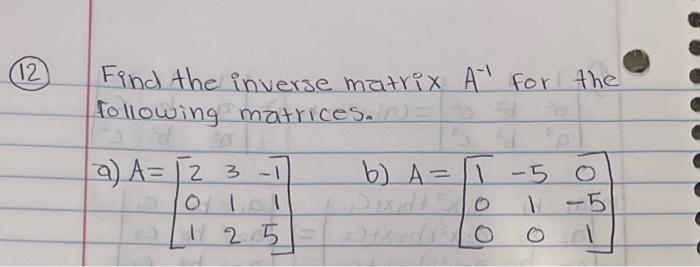 12 Find the inverse matrix A⁻¹ for the
following matrices.
a) A = [2 3 -1 b) A = [1 -5 0
0 1 1 0 1 -5
1 2 5] 0 0 1]